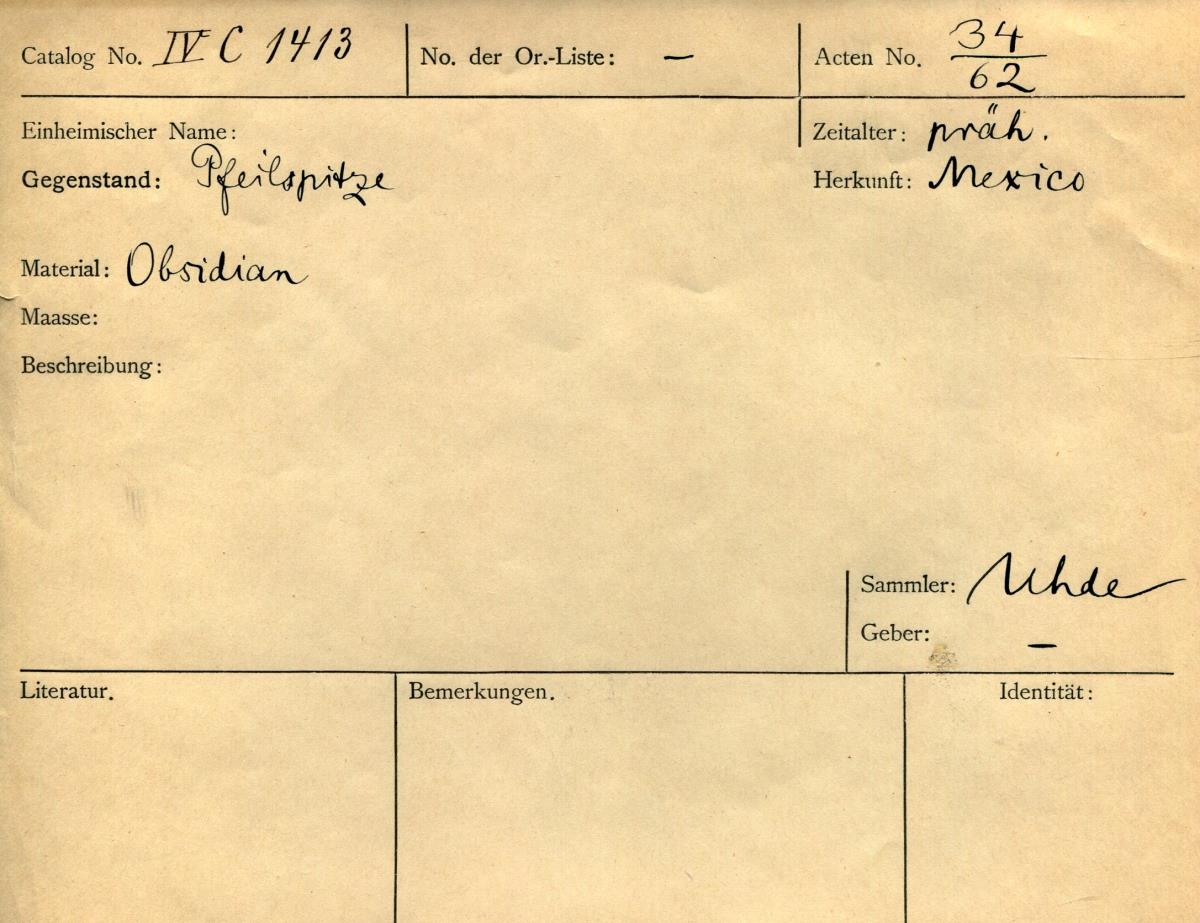 Catalog No. IV C 1413 No. der Or.-Liste: — Acten No. 34/62
Einheimischer Name: Zeitalter: präh.
Gegenstand: Pfeilspitze Herkunft: Mexico
Material: Obsidian
Maasse:
Beschreibung:
Sammler: Uhde
Geber: —
Literatur. Bemerkungen. Identität: